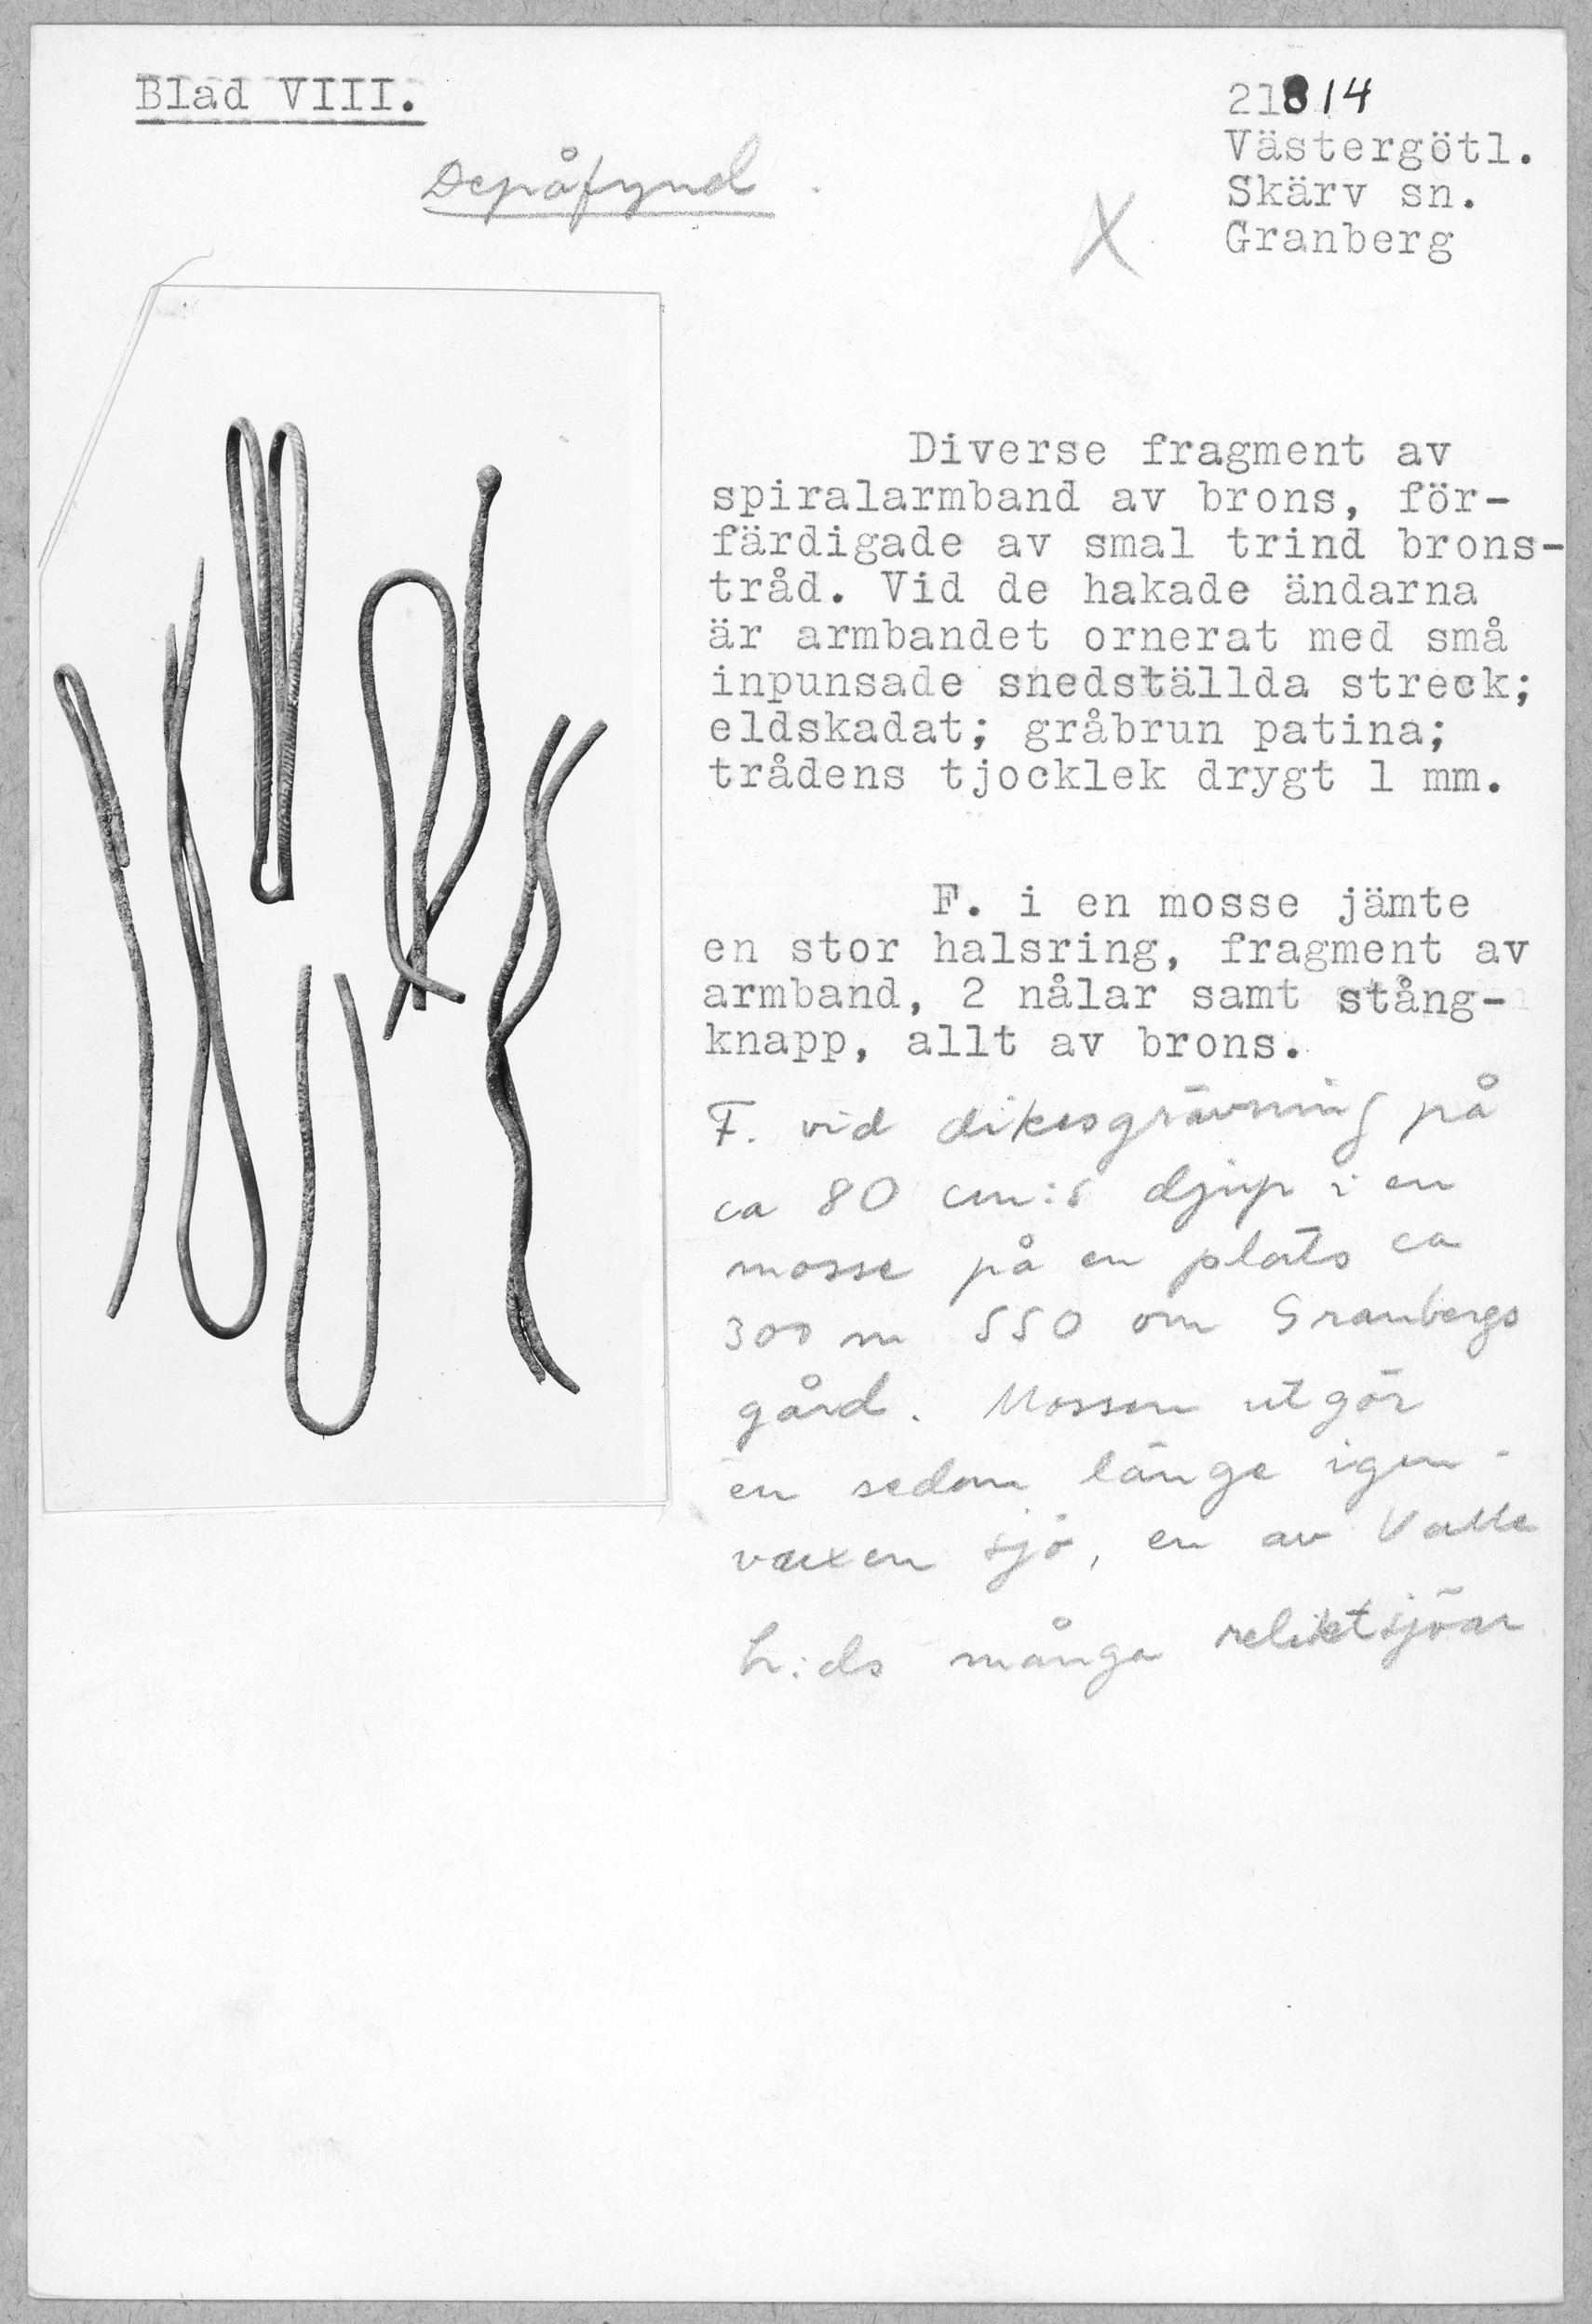 Blad VIII.
21814
Västergötl.
Skärv sn.
Granberg
Depåfynd.
X
Diverse fragment av
spiralarmband av brons, för-
färdigade av smal trind brons-
tråd. Vid de hakade ändarna
är armbandet ornerat med små
inpunsade snedställda streck;
eldskadat; gråbrun patina;
trådens tjocklek drygt 1 mm.
F. i en mosse jämte
en stor halsring, fragment av
armband, 2 nålar samt stång-
knapp, allt av brons.
F. vid dikesgrävning på
ca 80 cm:s djup i en
mosse på en plats ca
300 m SSO om Granbergs
gård. Mossen utgör
en sedan länge igen-
vaxen sjö, en av Valle
h:ds många reliktsjöar